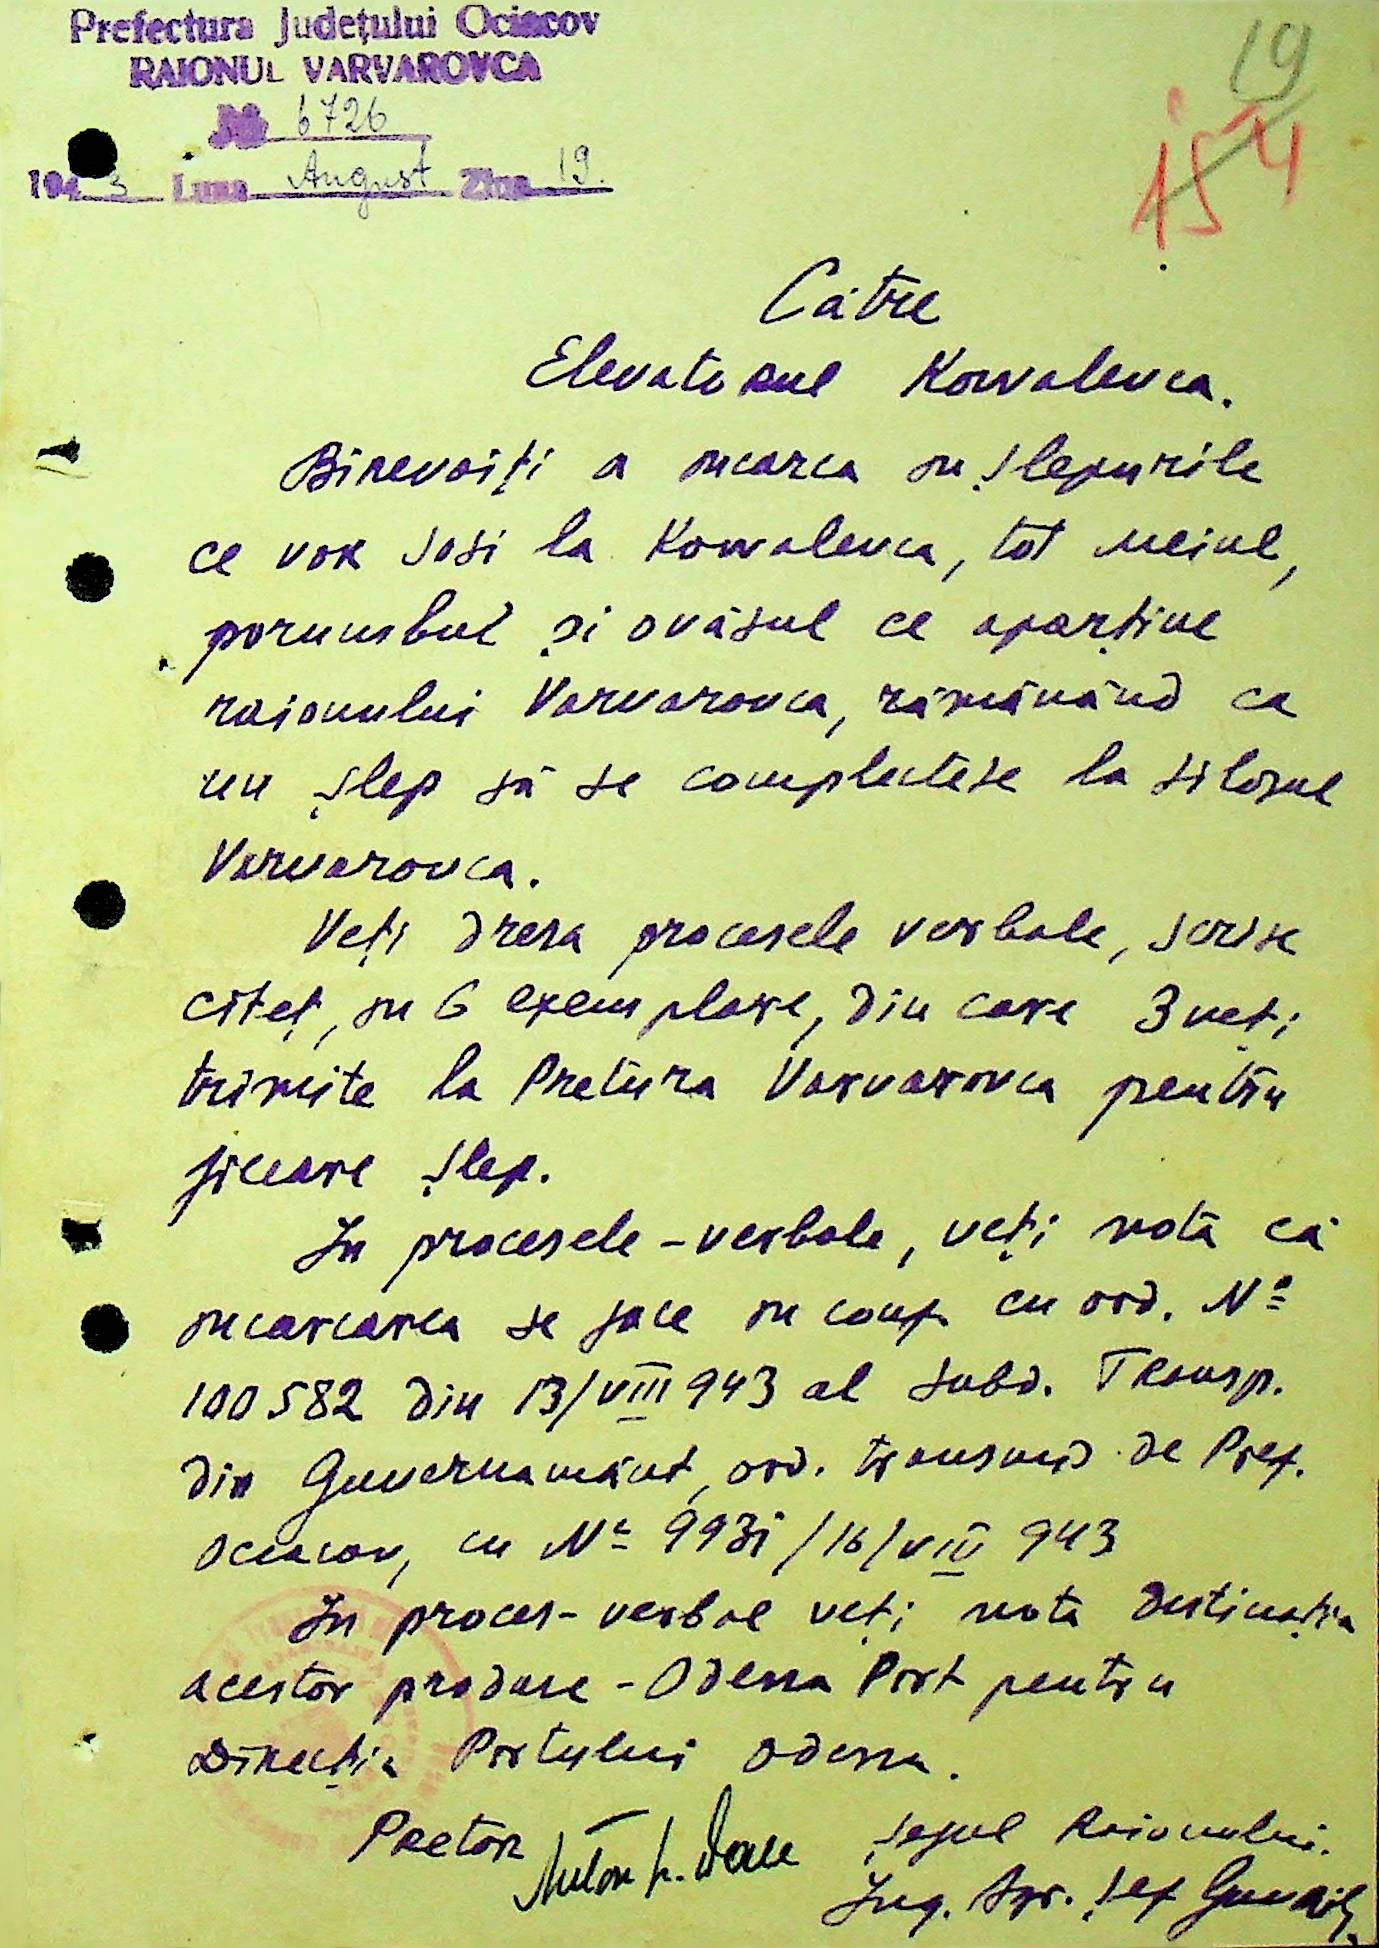 Prefectura Județului Ociacov
RAIONUL VARVAROVCA
No 6726
194 3 Luna August Ziua 19.
19
154
Către
Elevatorul Kowalevca.
Binevoiți a încărca în șlepurile
ce vor sosi la Kowalevca, tot meiul,
porumbul și ovăsul ce aparține
raionului Varvarovca, rămânând ca
un șlep să se complecteze la silozul
Varvarovca.
Veți dresa procesele verbale, scrise
citeț, în 6 exemplare, din care 3 veți
trimite la Pretura Varvarovca pentru
fiecare șlep.
În procesele-verbale, veți notă că
încărcarea se face în conf. cu ord. No
100582 din 13/VIII 943 al Subd. Transp.
din Guvernământ, ord. transmis de Pref.
Oceacov, cu No 9931/16/VIII 943
În proces-verbal veți notă destinația
acestor produse - Odessa Port pentru
Direcția Portului Odessa.
Pretor Șeful Raionului.
Ing. Agr. Șef